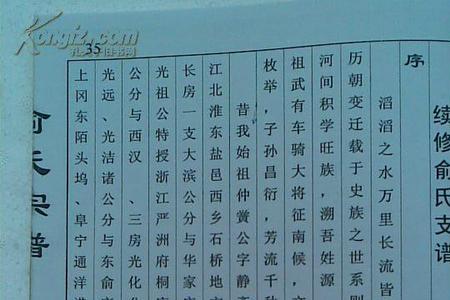 Kongfz.com
孔夫子旧书网
35
续修俞氏支谱
序
滔滔之水万里长流皆
历朝变迁载于史族之世系则
河间积学旺族，溯吾姓源
祖武有车骑大将征南候，
枚举，子孙昌衍，芳流千
昔我始祖仲簧公字静
江北淮东盐邑西乡石桥地
长房一支大滨公分与华家
光祖公特授浙江严洲府桐
公分与西汉、三房光化
光远、光洁诸公分与东俞
上冈东陌头坞、阜宁通洋
俞氏宗谱